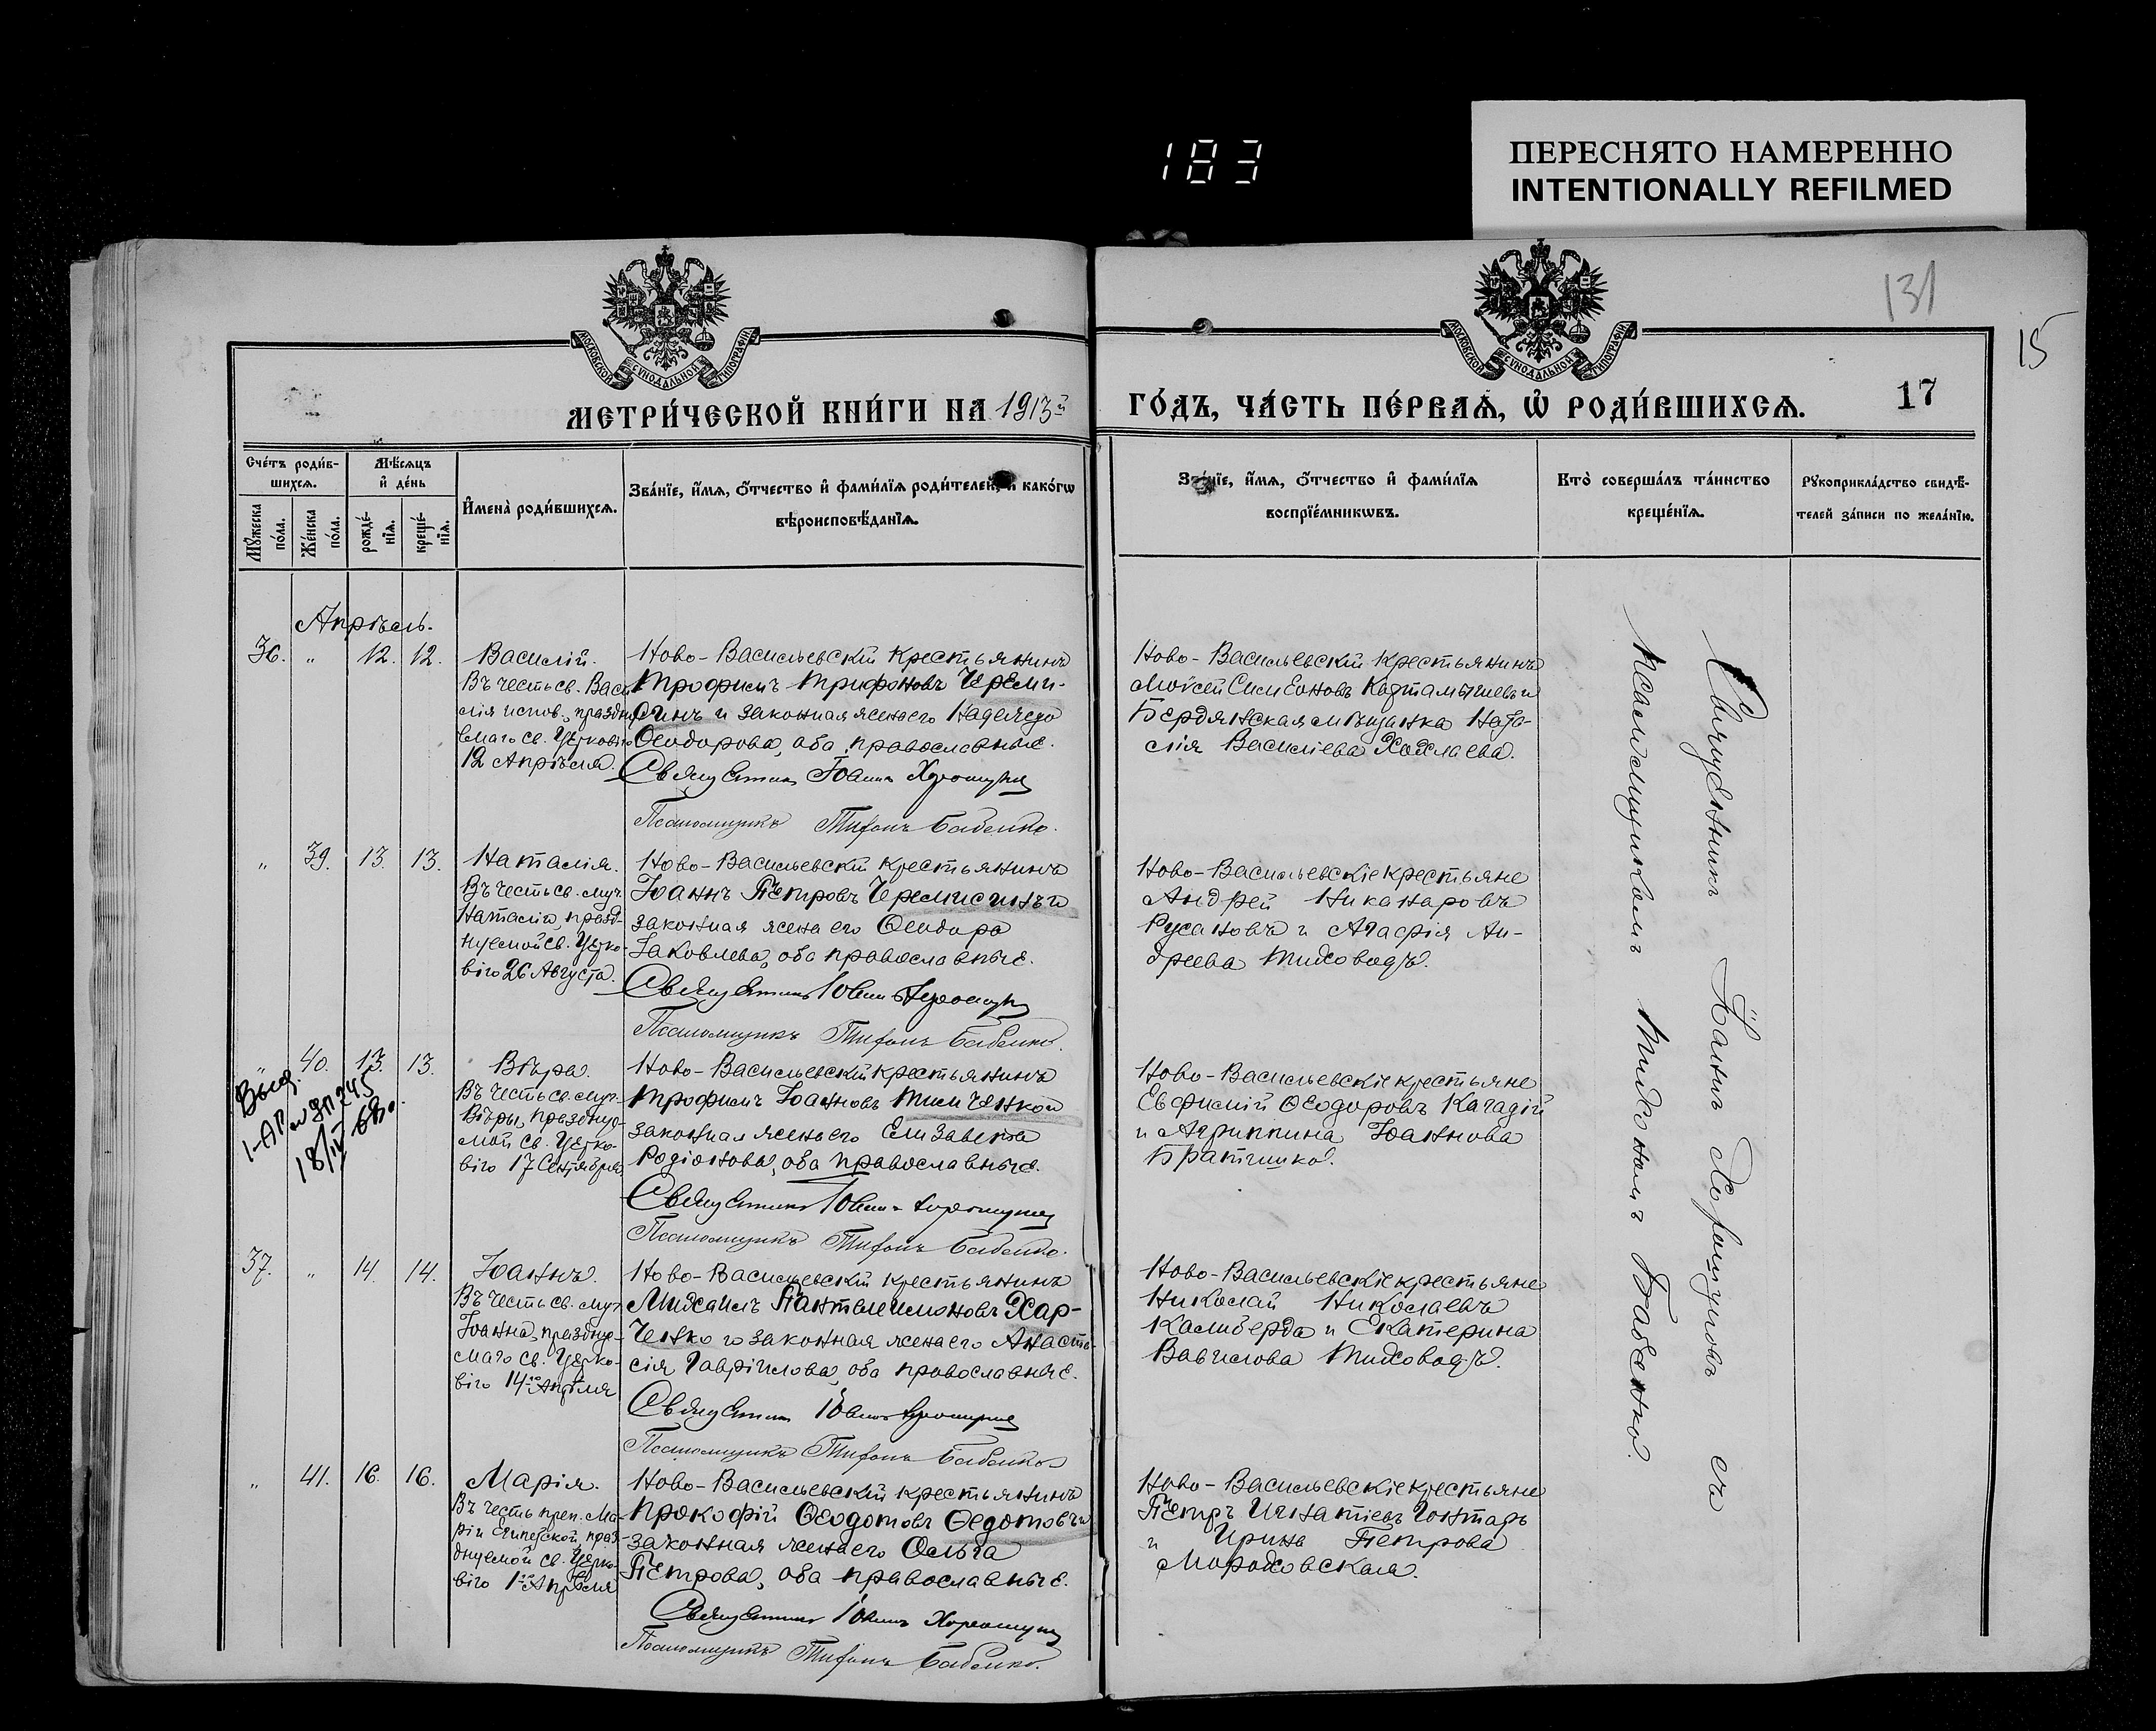 183
ПЕРЕСНЯТО НАМЕРЕННО
INTENTIONALLY REFILMED
131
15
МОСКОВСКОЙ СѴНОДАЛЬНОЙ ТИПОГРАФІИ
МОСКОВСКОЙ СѴНОДАЛЬНОЙ ТИПОГРАФІИ
МЕТРИ́ЧЕСКОЙ КНИ́ГИ НА 1913й
ГО́ДЪ, ЧА́СТЬ ПЕ́РВАѦ, Ѡ҆ РОДИ́ВШИХСѦ.
17
Сче́тъ роди́в-
шихсѧ.
Мꙋ́жеска по́ла.
Же́нска по́ла.
Мѣ́сѧцъ
и҆ де́нь
рожде́-
нїѧ.
креще́-
нїѧ.
И҆мена̀ роди́вшихсѧ.
Зва́нїе, и҆́мѧ, ѻ҆́тчество и҆ фами́лїѧ роди́телей, и҆ како́гѡ
вѣроисповѣ́данїѧ.
Зва́нїе, и҆́мѧ, ѻ҆́тчество и҆ фами́лїѧ
воспрїе́мникѡвъ.
Кто̀ соверша́лъ та́инство
креще́нїѧ.
Рꙋкоприкла́дство свидѣ́-
телей за́писи по жела́нїю.
Апрѣль.
36. " 12. 12.
Василій.
Въ честь св. Васи-
лія испов., праздну-
емаго св. Церковію
12 Апрѣля.
Ново-Васильевскій крестьянинъ
Трофимъ Трифоновъ Череми-
синъ и законная жена его Надежда
Ѳеодорова, оба православные.
Священникъ Іоаннъ Хорошунъ
Псаломщикъ Тихонъ Бабенко.
Ново-Васильевскій крестьянинъ
Моѵсей Симеоновъ Картамышевъ и
Бердянская мѣщанка Ната-
лія Василіева Хохлаева.
Священникъ Іоаннъ Хорошуновъ съ
псаломщикомъ Тихономъ Бабенко.
" 39. 13. 13.
Наталія.
Въ честь св. муч.
Наталіи, празд-
нуемой св. Церко-
вію 26 Августа.
Ново-Васильевскій крестьянинъ
Іоаннъ Петровъ Черемисинъ и
законная жена его Ѳеодора
Іаковлева, оба православные.
Священникъ Іоаннъ Хорошунъ
Псаломщикъ Тихонъ Бабенко.
Ново-Васильевскіе крестьяне
Андрей Никаноровъ
Русановъ и Агафія Ан-
дреева Тиховодъ.
" 40. 13. 13.
Выд.
18/IV
Вѣра.
Въ честь св. муч.
Вѣры, празднуе-
мой св. Церко-
вію 17 Сентября.
Ново-Васильевскій крестьянинъ
Трофимъ Іоанновъ Тимченко и
законная жена его Елизавета
Родіонова, оба православные.
Священникъ Іоаннъ Хорошунъ
Псаломщикъ Тихонъ Бабенко.
Ново-Васильевскіе крестьяне
Евфимій Ѳеодоровъ Кагадій
и Агриппина Іоаннова
Братишко.
37. " 14. 14.
Іоаннъ.
Въ честь св. муч.
Іоанна, празднуе-
маго св. Церко-
вію 14го Апрѣля
Ново-Васильевскій крестьянинъ
Михаилъ Пантелеимоновъ Хар-
ченко и законная жена его Анаста-
сія Гавріилова, оба православные.
Священникъ Іоаннъ Хорошунъ
Псаломщикъ Тихонъ Бабенко
Ново-Васильевскіе крестьяне
Николай Николаевъ
Калиберда и Екатерина
Вавилова Тиховодъ.
" 41. 16. 16.
Марія.
Въ честь преп. Ма-
ріи Египетской, праз-
днуемой св. Церко-
вію 1го Апрѣля
Ново-Васильевскій крестьянинъ
Прокофій Ѳеодотовъ Ѳедотовъ и
законная жена его Ольга
Петрова, оба православные.
Священникъ Іоаннъ Хорошунъ
Псаломщикъ Тихонъ Бабенко.
Ново-Васильевскіе крестьяне
Петръ Игнатіевъ Гонтарь
и Ирина Петрова
Мороховская.